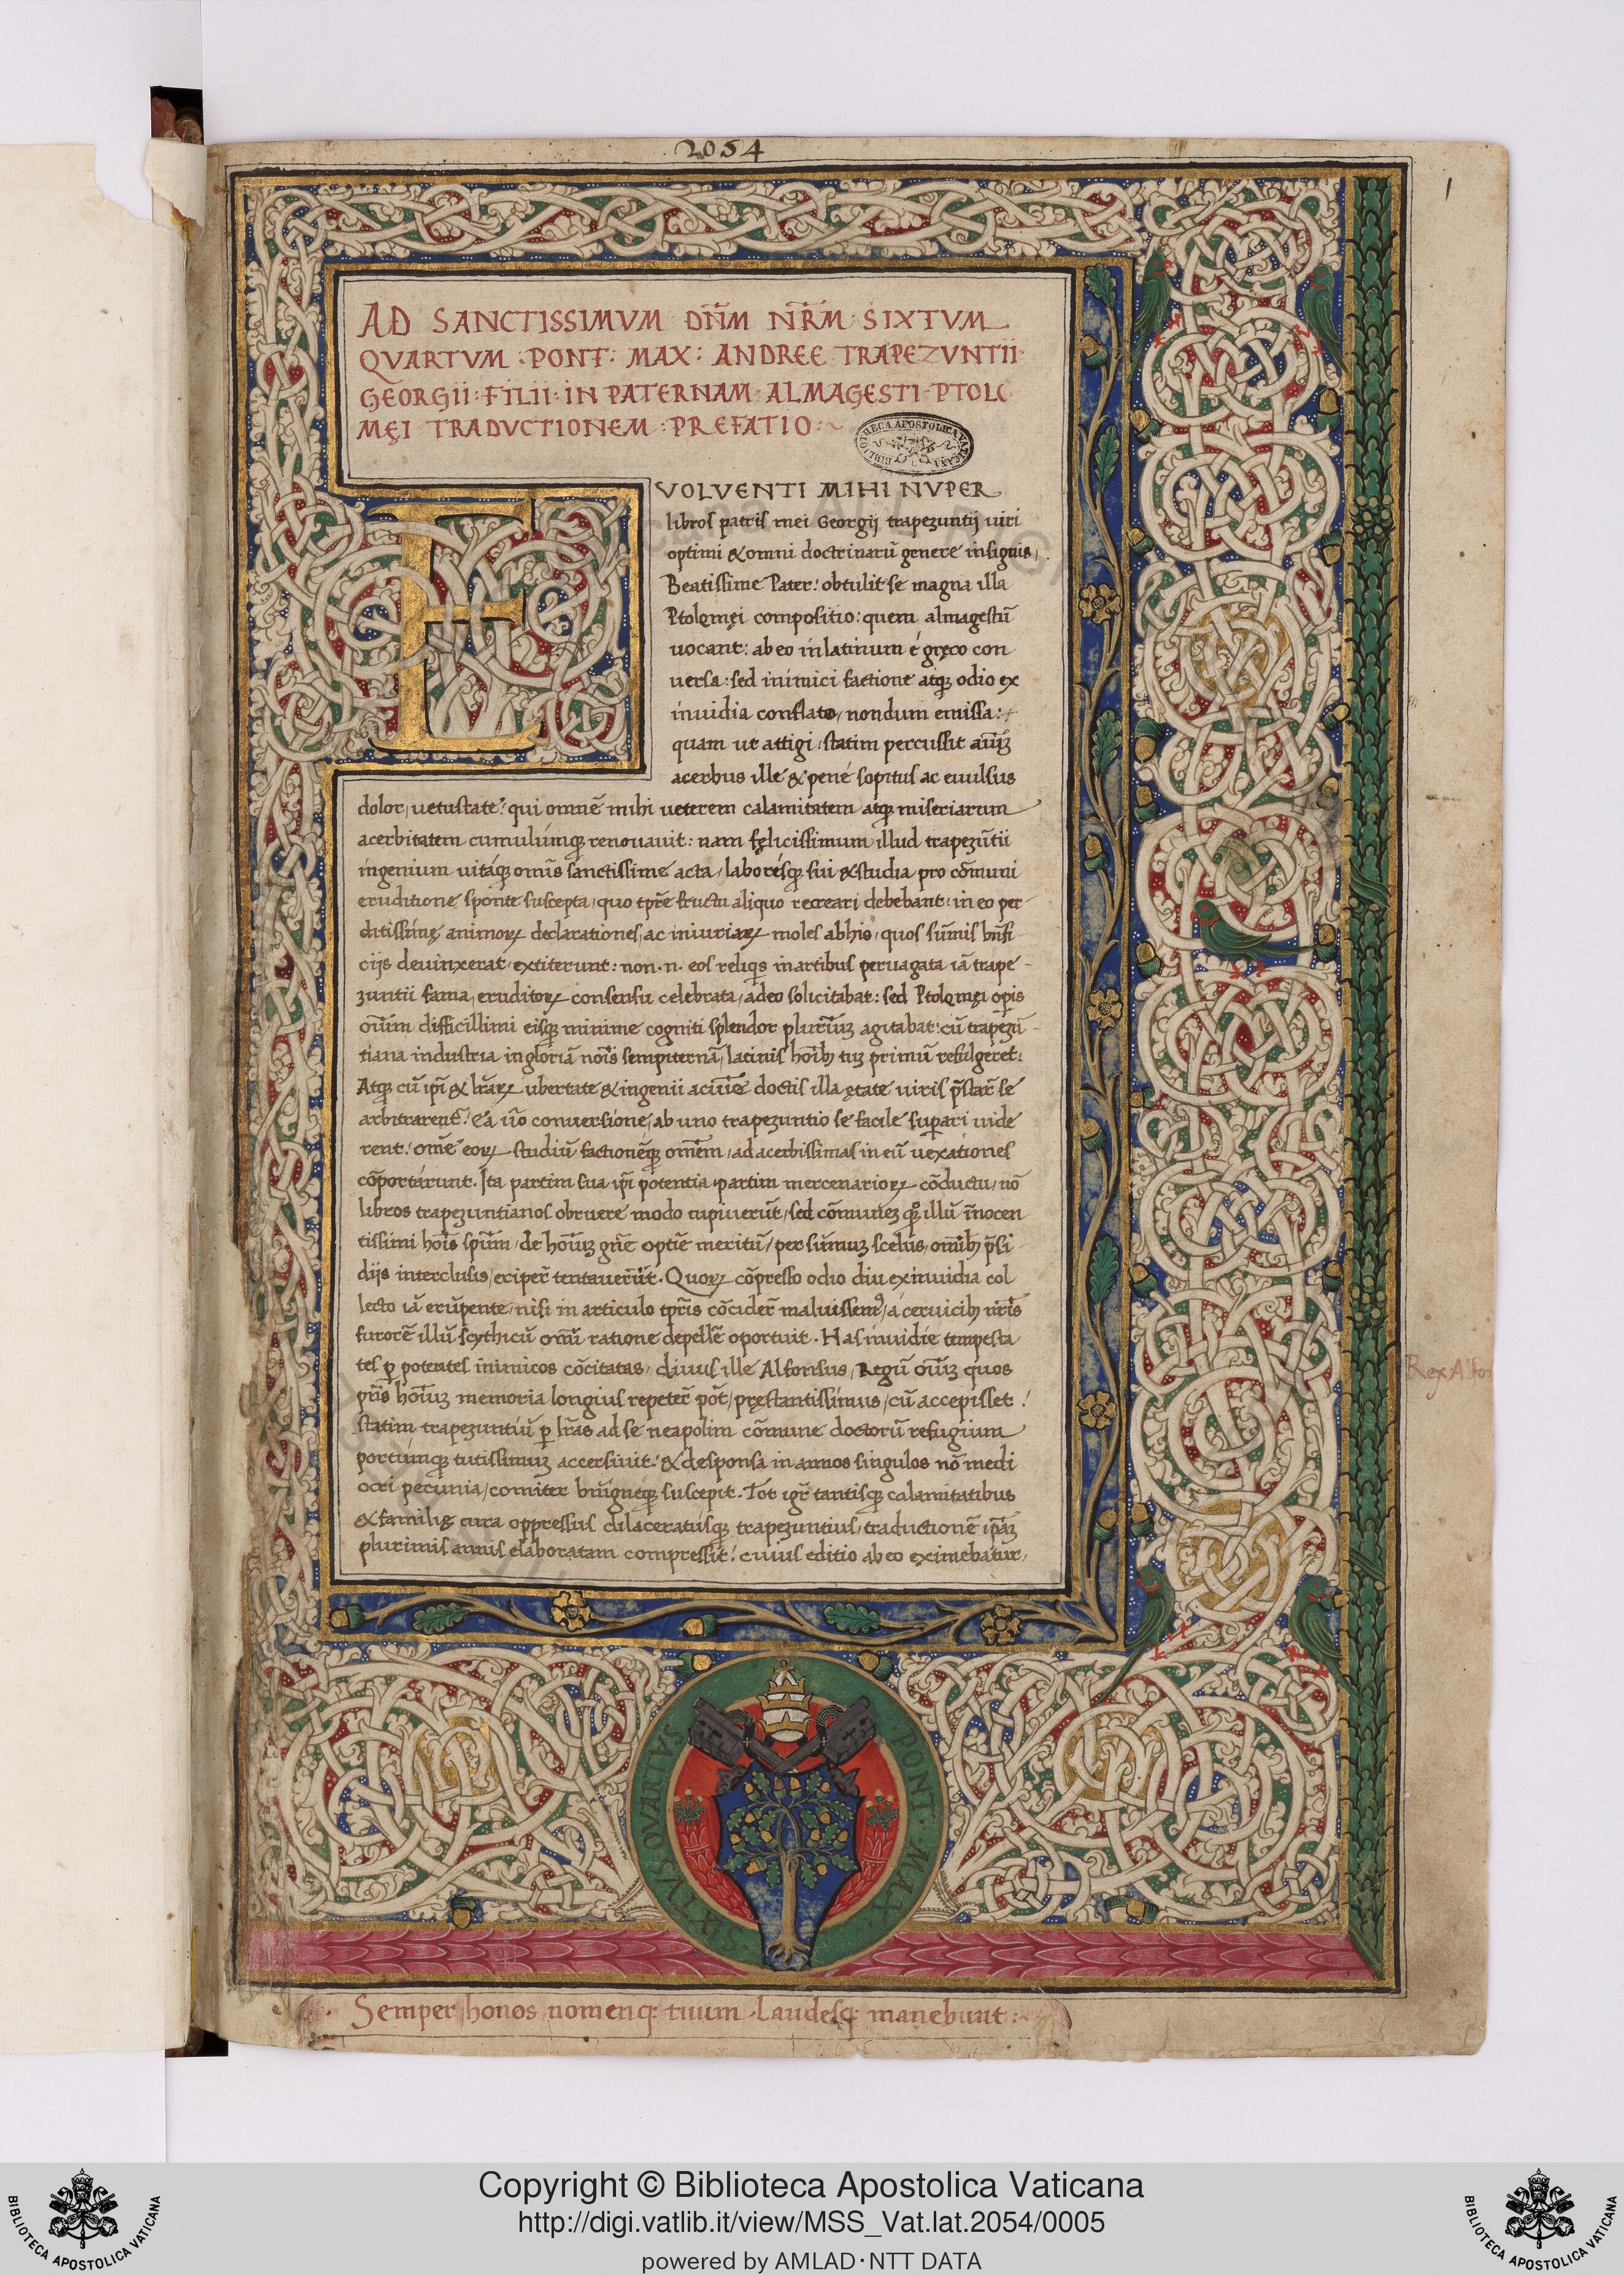 2054
1
AD SANCTISSIMVM DN̄M NR̄M SIXTVM
QVARTVM : PONT : MAX : ANDREE TRAPEZVNTII
GEORGII : FILII : IN PATERNAM ALMAGESTI PTOLO
MĘI TRADVCTIONEM : PREFATIO : ~
BIBLIOTHECA APOSTOLICA VATICANA
EVOLVENTI MIHI NVPER
libros patris mei Georgij trapezuntij uiri
optimi & omni doctrinarū genere insignis,
Beatissime Pater: obtulit se magna illa
Ptolomęi compositio: quem almagestū
uocant: ab eo in latinum é gręco con
uersa: sed inimici factione atq; odio ex
inuidia conflato, nondum emissa:
quam ut attigi, statim percussit
acerbus ille & pené sopitus ac euulsus
dolor, uetustate: qui omnē mihi ueterem calamitatem atq; miseriarum
acerbitatem cumulúmq; renouauit: nam fęlicissimum illud trapezūtii
ingenium uitáq; omīs sanctissimé acta, laborésq; sui & studia pro cōmuni
eruditione sponte suscepta, quo tpr̄e fructu aliquo recreari debebant: in eo per-
ditissimę animoꝝ declarationes, ac iniuriaꝝ moles ab his, quos sūmis bn̄fi-
cijs deuinxerat, extiterunt: non .n. eos reliq̄s in artibus peruagata iā trape-
zuntii fama, eruditoꝝ consensu celebrata, adeo solicitabat: sed Ptolomęi opis
difficillimi eisq; minime cogniti splendor agitabat: cū trapezū-
tiana industria in gloriā noīs sempiternā, latinis primū refulgeret:
Atq; cū ip̄i & lr̄aꝝ ubertate & ingenii doctis illa ętate uiris p̄starē se
arbitrarent: eá u͞o conuersione, ab uno trapezuntio se facile suꝑari uide
rent: om̄e eoꝝ studiū factionēq; ad acerbissimas in eū uexationes
cōportárunt. Ita partim sua ip̄i potentia, partim mercenarioꝝ cōductu, nō
libros trapezuntianos obruere modo cupiuerūt, sed cōmunez illū īnocen
tissimi hoīs de gn̄e optīe meritū, per sūmuz scelus, p̄si-
dijs interclusis, eriper̄ tentauerūt. Quoꝝ cōpresso odio diu ex inuidia col
lecto iā erūpente, nisi in articulo tpr̄is cōcider̄ á ceruicibꝫ nr̄is
furorē illū scythicū ratione depellē oportuit. Has inuidie tempesta
tes ꝑ potentes inimicos cōcitatas, diuus ille Alfonsus, Regū quos
memoria longius repeter̄ pōt, pręstantissimus, cū accepisset:
statim trapezuntiū ꝑ lr̄as ad sé neapolim cōmune doctorū refugium
portúmq; tutissimuz accersiuit: & desponsa in annos singulos nō medi
ocri pecunia, comiter suscepit. Tot igr̄ tantisq; calamitatibus
& familię cura oppressus dilaceratúsq; trapezuntius, traductionē ip̄az
plurimis annis elaboratam compressit: cuius editio ab eo eximebatur,
Rex Alfon
SIXTVS QVARTVS PONT MAX
Semper honos nomenq: tuum Laudesq: manebunt : ~
Copyright © Biblioteca Apostolica Vaticana
http://digi.vatlib.it/view/MSS_Vat.lat.2054/0005
powered by AMLAD·NTT DATA
BIBLIOTECA APOSTOLICA VATICANA
BIBLIOTECA APOSTOLICA VATICANA